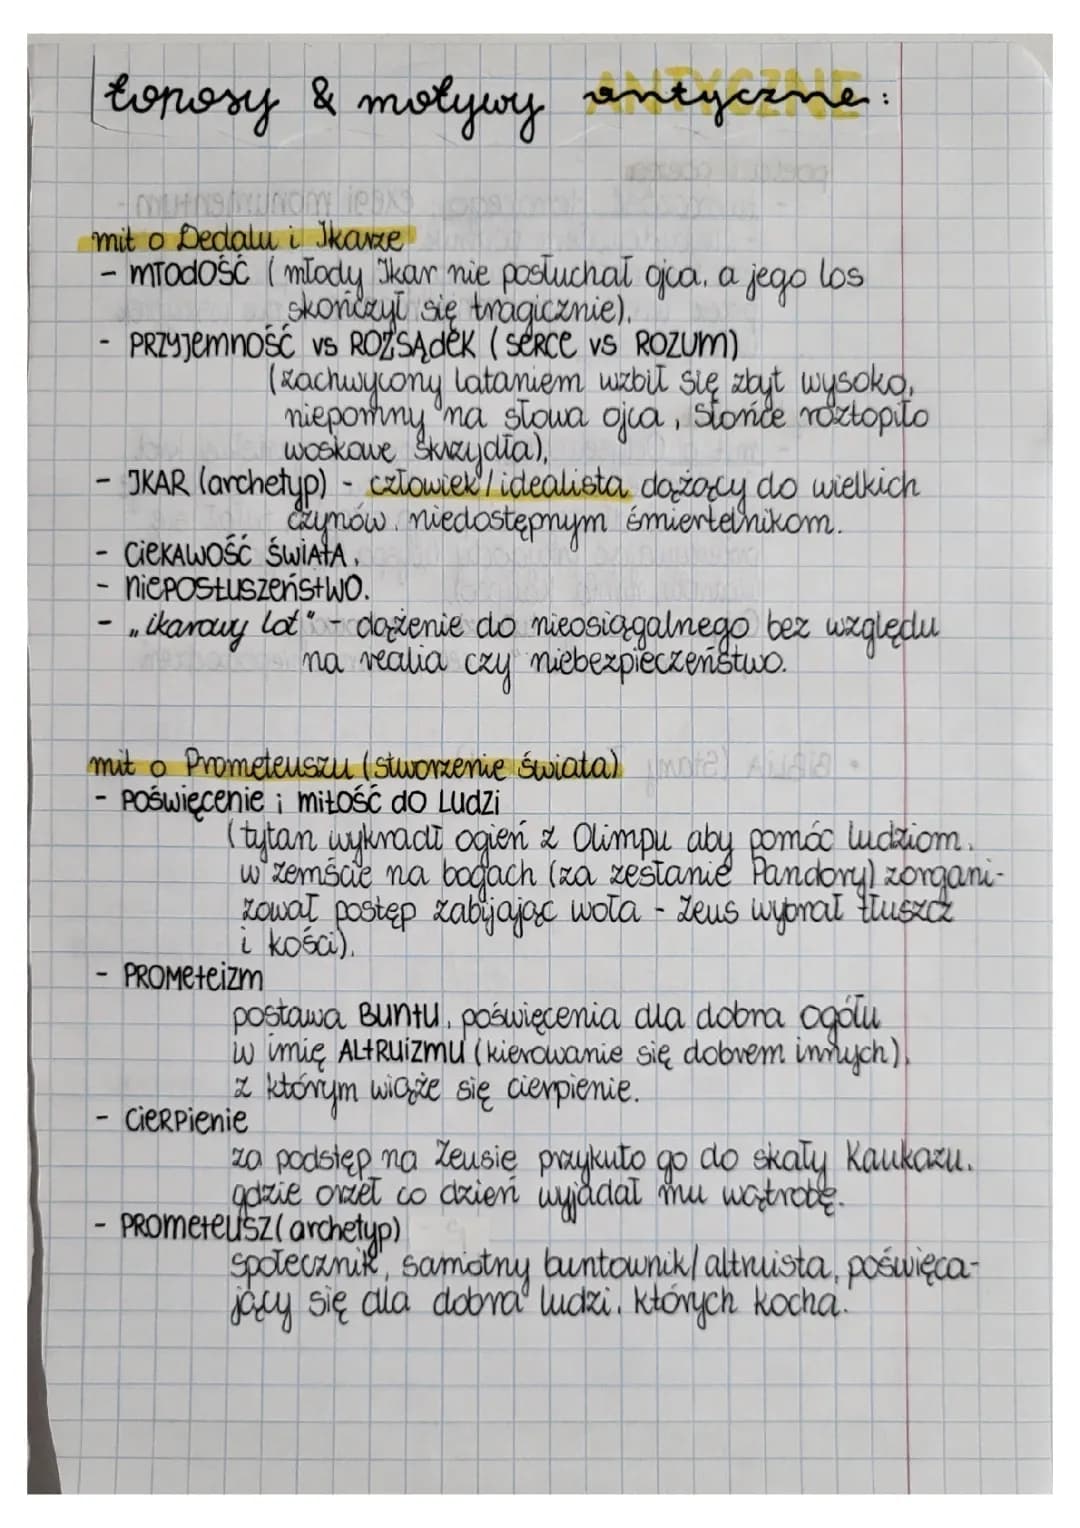 toposy & motywy antyczne:
mit o Dedalu i Ikarze
- MŁODOŚĆ (młody Ikar nie posłuchał ojca, a jego los
skończył się tragicznie),
- PRZYJEMNOŚĆ vs ROZSĄDEK (SERCE vs ROZUM)
(zachwycony lataniem wzbił się zbyt wysoko,
niepomny na słowa ojca, słońce roztopiło
woskowe skrzydła),
- IKAR (archetyp) - człowiek/idealista dążący do wielkich
czynów, niedostępnym śmiertelnikom.
- CIEKAWOŚĆ ŚWIATA,
- NIEPOSŁUSZEŃSTWO.
- „ikarowy lot" - dążenie do nieosiągalnego bez względu
na realia czy niebezpieczeństwo.
mit o Prometeuszu (stworzenie świata)
- POŚWIĘCENIE i MIŁOŚĆ DO LUDZI
(tytan wykradł ogień z Olimpu aby pomóc ludziom,
w zemście na bogach (za zesłanie Pandory) zorgani-
zował postęp zabijając woła - Zeus wybrał tłuszcz
i kości),
- PROMETEIZM
postawa BUNTU, poświęcenia dla dobra ogółu
w imię ALTRUIZMU (kierowanie się dobrem innych),
z którym wiąże się cierpienie.
- CIERPIENIE
za podstęp na Zeusie przykuto go do skały Kaukazu,
gdzie orzeł co dzień wyjadał mu wątrobę.
- PROMETEUSZ (archetyp)
społecznik, samotny buntownik/altruista, poświęca-
jący się dla dobra ludzi, których kocha.